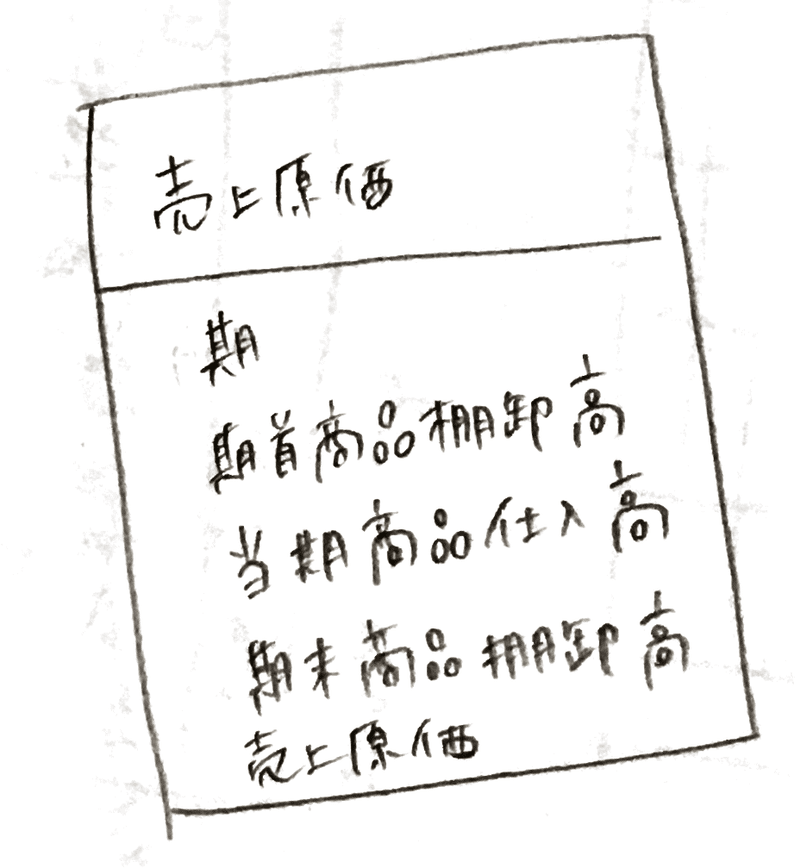 売上原価
期
期首商品棚卸高
当期商品仕入高
期末商品棚卸高
売上原価